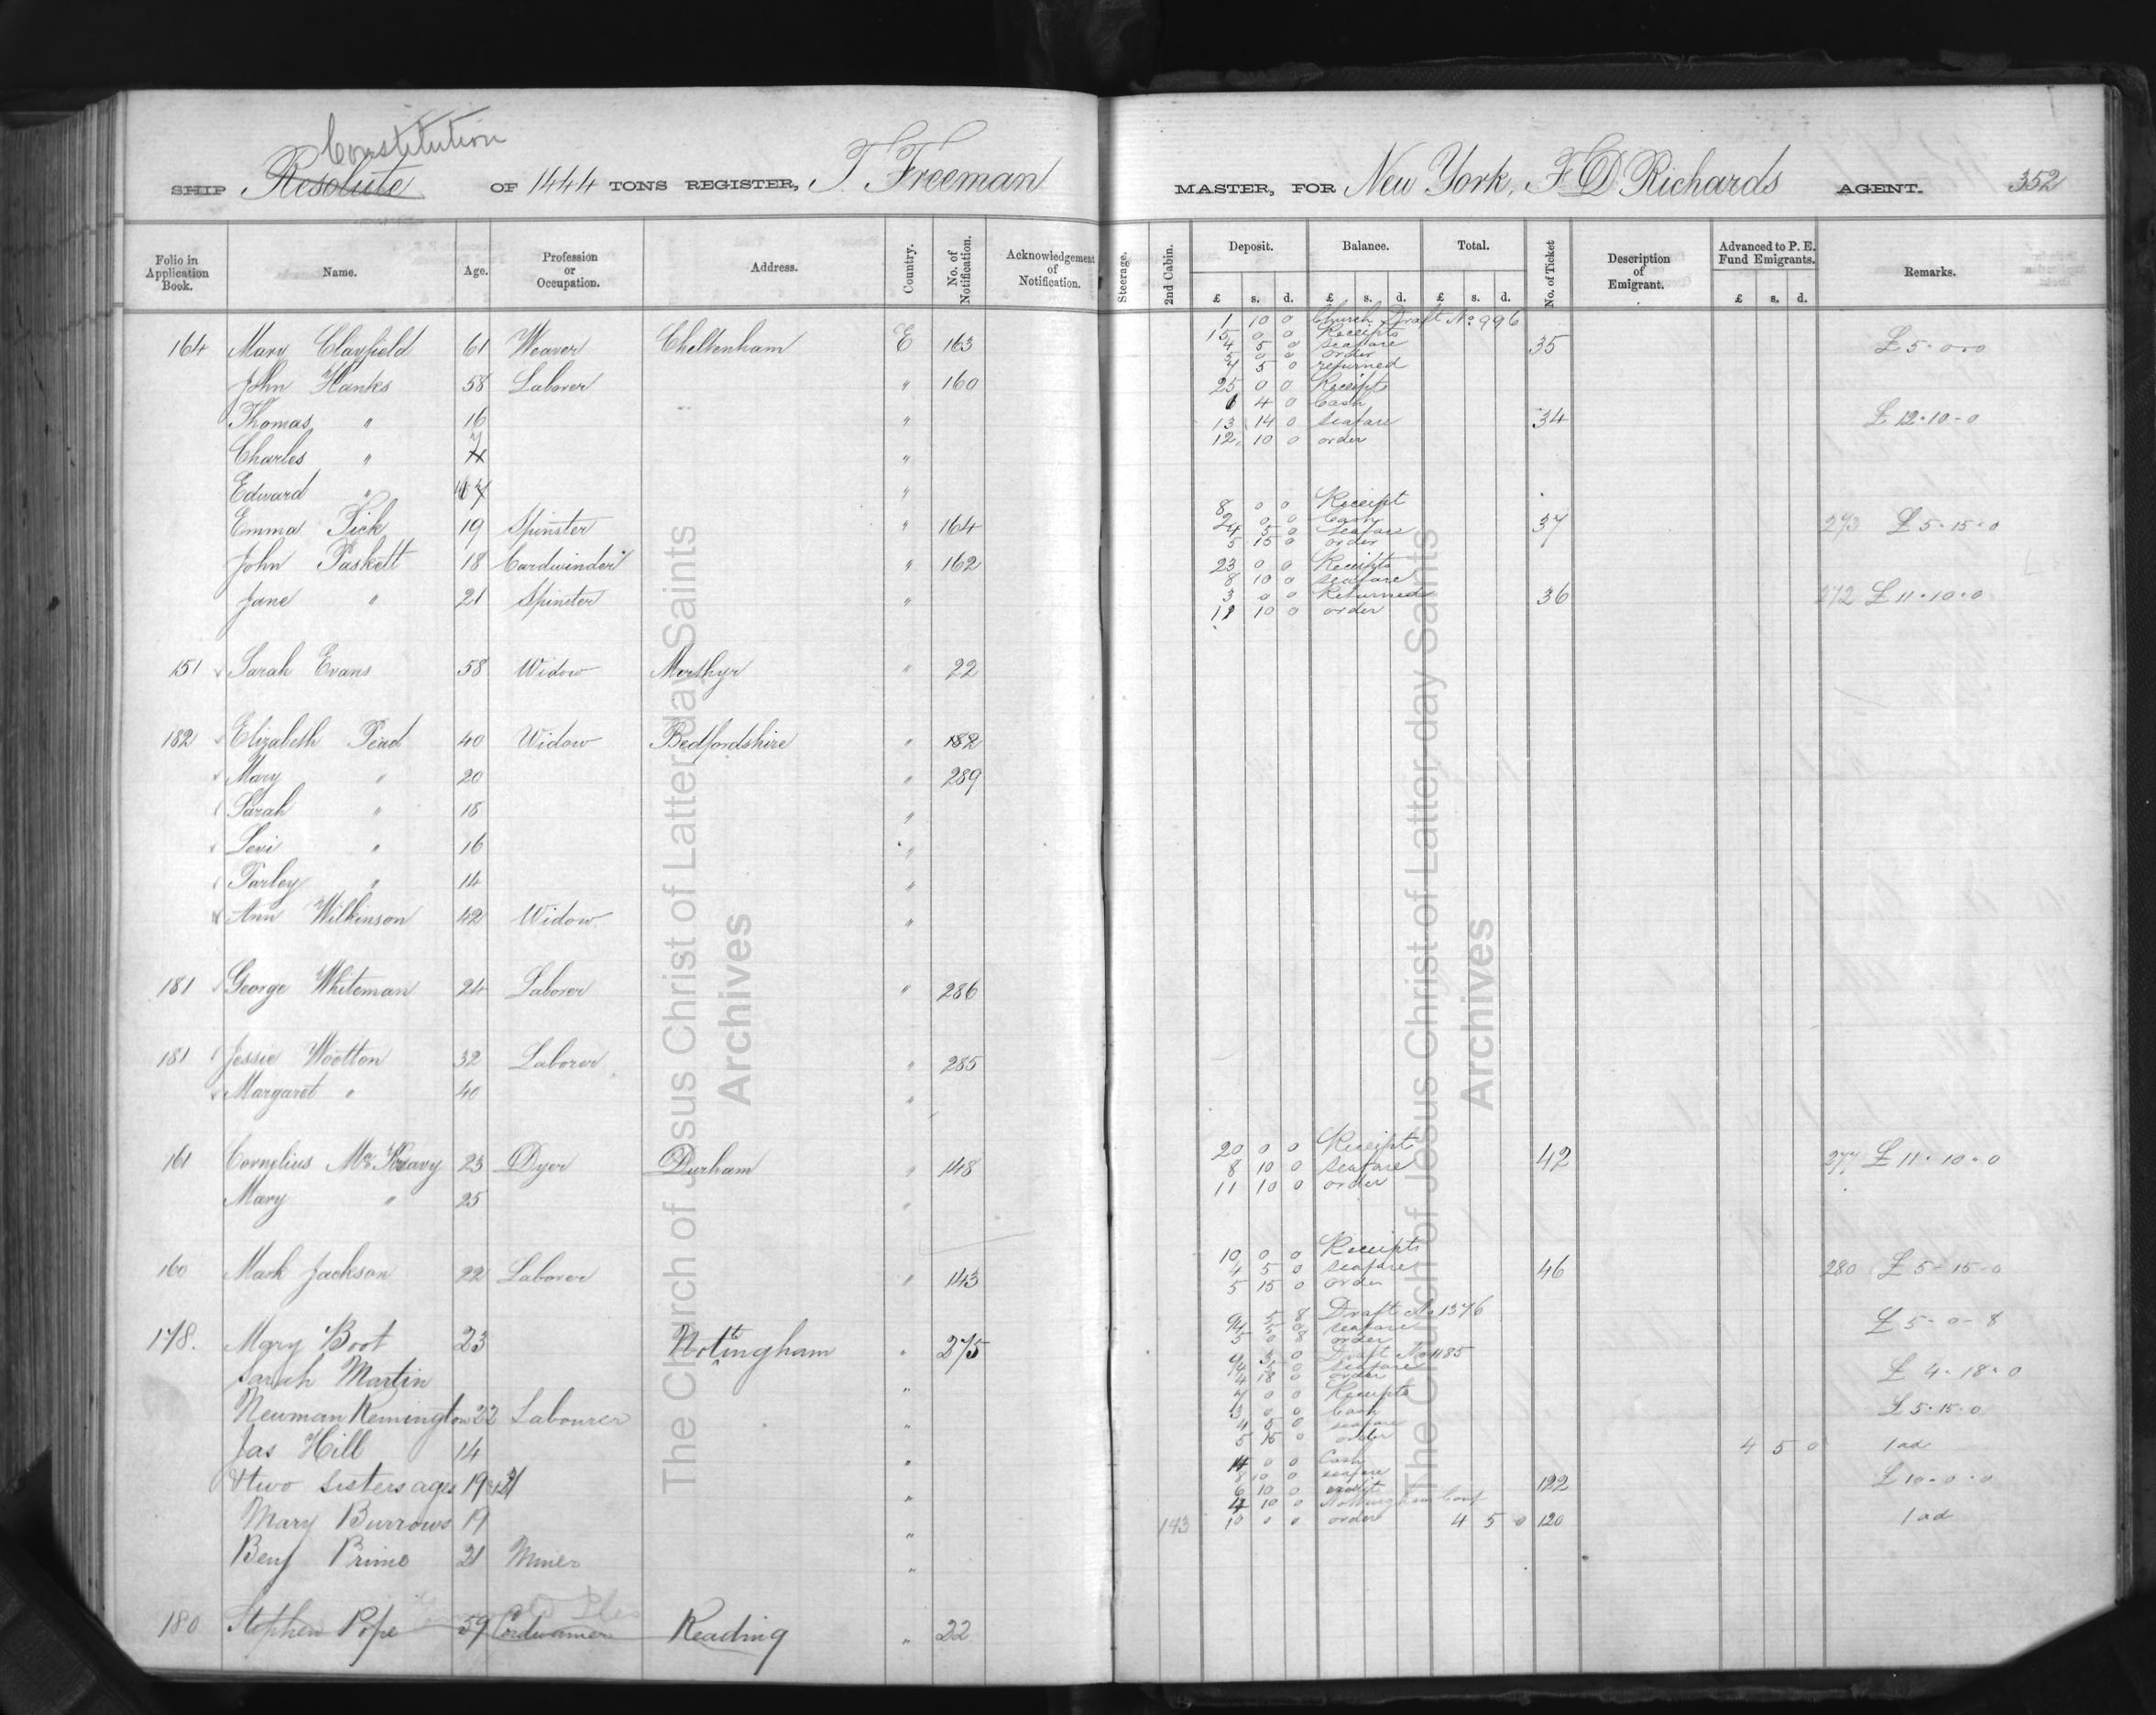 Constitution
SHIP Resolute OF 1444 TONS REGISTER, T. Freeman MASTER, FOR New York, F D Richards AGENT. 352
Folio in Application Book. Name. Age. Profession or Occupation. Address. Country. No. of Notification. Acknowledgement of Notification. Steerage. 2nd Cabin. Deposit. Balance. Total. No. of Ticket Description of Emigrant. Advanced to P. E. Fund Emigrants. Remarks.
£ s. d. £ s. d. £ s. d. £ s. d.
1 10 0 Church Draft No. 996
15 0 0 Receipts
164 Mary Clayfield 61 Weaver Cheltenham E 163 4 5 0 seafare 35 £5-0-0
5 0 0 order
7 5 0 returned
John Hanks 58 Laborer " 160 25 0 0 Receipts
1 4 0 Cash
Thomas " 16 " 13 14 0 seafare 34 £12-10-0
12 10 0 order
Charles " "
Edward " "
8 0 0 Receipt
2 0 0 Cash
Emma Pick 19 Spinster " 164 4 5 0 seafare 37 273 £5-15-0
5 15 0 order
John Paskett 18 Cardwinder " 162 23 0 0 Receipts
8 10 0 seafare
Jane " 21 Spinster " 3 0 0 Returned 36 272 £11-10-0
11 10 0 order
151 Sarah Evans 58 Widow Merthyr " 22
182 Elizabeth Pead 40 Widow Bedfordshire " 182
Mary " 20 " 289
Sarah " 18 "
Levi " 16 "
Farley " 14 "
Ann Wilkinson 42 Widow "
181 George Whiteman 24 Laborer " 286
181 Jessie Wootton 32 Laborer " 285
Margaret " 40 "
20 0 0 Receipt
161 Cornelius 23 Dyer Durham " 148 8 10 0 seafare 42 277 £11-10-0
11 10 0 order
Mary " 25 "
10 0 0 Receipts
160 Mark Jackson 22 Laborer " 143 4 5 0 seafare 46 280 £5-15-0
5 15 0 order
9 5 8 Draft No 1376
4 5 0 seafare £5-0-8
178. Mary Boot 23 Nottingham " 275 5 0 8 order
9 3 0 Draft No 1185
4 5 0 seafare
Sarah Martin " 4 18 0 order £4-18-0
7 0 0 Receipts
Neuman Remington 22 Labourer " 3 0 0 Cash £5-15-0
4 5 0 seafare
5 15 0 order
Jas Hill 14 " 4 5 0 1 ad
14 0 0 Cash
8 10 0 seafare
& two sisters ages 19 & 21 " 6 10 0 credit 122 £10-0-0
4 10 0 Nottingham Conf
Mary Burrows 19 " 143 10 0 0 order 4 5 0 120 1 ad
Benj Prime 21 Miner "
180 Stephen Pope 59 Cordwainer Reading " 22
The Church of Jesus Christ of Latter-day Saints
Archives
The Church of Jesus Christ of Latter-day Saints
Archives